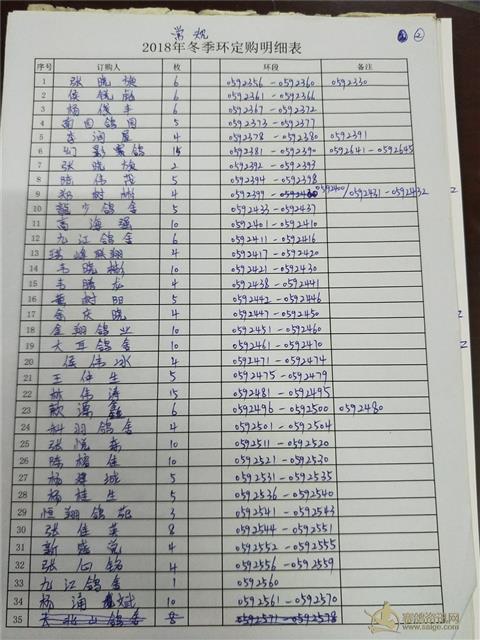 常规
2018年冬季环定购明细表
② 
序号 订购人 枚 环段 备注
1 张晓 6 0592356-0592360 0592330
2 侯锐彪 6 0592361-0592366
3 杨俊丰 6 0592367-0592372
4 南田鸽园 5 0592373-0592377
5 李润星 4 0592378-0592380 0592391
6 幻影赛鸽 15 0592381-0592390 0592641-0592645
7 张晓 2 0592392-0592393
8 陈伟 5 0592394-0592398
9 郑树彬 4 0592399 0592400/0592431-0592432
10 龍少鸽舍 5 0592433-0592437
11 高海强 10 0592401-0592410
12 九江鸽舍 6 0592411-0592416
13 联翔 4 0592417-0592420
14 韦晓彬 10 0592421-0592430
15 韦腾龙 4 0592438-0592441
16 黄树阳 5 0592442-0592446
17 余庆晓 4 0592447-0592450
18 金翔鸽业 10 0592451-0592460
19 大耳鸽舍 10 0592461-0592470
20 侯伟冰 4 0592471-0592474
21 王仕生 5 0592475-0592479
22 林伟涛 15 0592481-0592495
23 欧深鑫 6 0592496-0592500 0592480
24 科羽鸽舍 4 0592501-0592504
25 张悦森 10 0592511-0592520
26 陈榕佳 10 0592521-0592530
27 杨建城 5 0592531-0592535
28 杨桂生 5 0592536-0592540
29 恒翔鸽苑 3 0592541-0592543
30 张佳英 8 0592544-0592551
31 新盛党 4 0592552-0592555
32 张向铭 4 0592556-0592559
33 九江鸽舍 1 0592560
34 杨涌斌 10 0592561-0592570
35 大北山鸽舍 8 0592571-0592578
赛鸽资讯网
www.saige.com